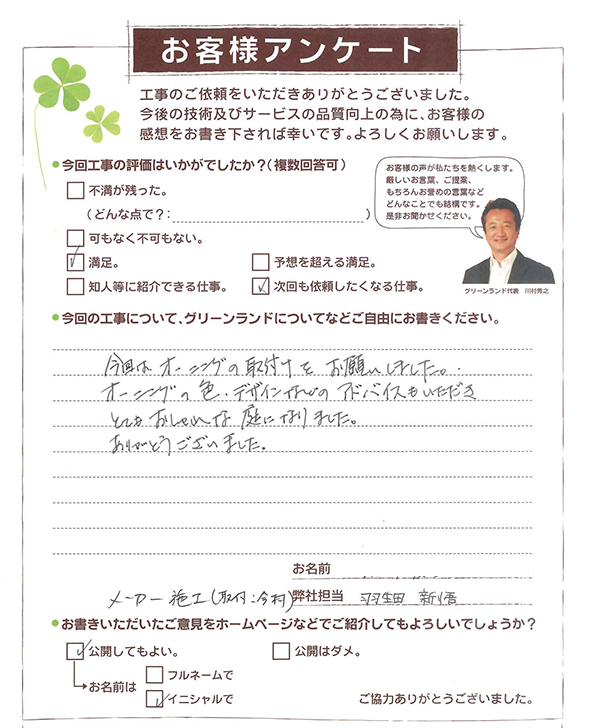 お客様アンケート
工事のご依頼をいただきありがとうございました。
今後の技術及びサービスの品質向上の為に、お客様の
感想をお書き下されば幸いです。よろしくお願いします。
●今回工事の評価はいかがでしたか?(複数回答可)
不満が残った。
(どんな点で?:
可もなく不可もない。
満足。
予想を超える満足。
知人等に紹介できる仕事。
次回も依頼したくなる仕事。
お客様の声が私たちを熱くします。
厳しいお言葉、ご提案、
もちろんお誉めの言葉など
どんなことでも結構です。
是非お聞かせください。
グリーンランド代表 川村秀之
●今回の工事について、グリーンランドについてなどご自由にお書きください。
今回は オーニングの取付けを お願いしました。
オーニングの色・デザインなどの アドバイスもいただき
とてもおしゃれな 庭になりました。
ありがとうございました。
お名前
メーカー施工(取付:今村)
弊社担当 羽生田 新悟
●お書きいただいたご意見をホームページなどでご紹介してもよろしいでしょうか?
公開してもよい。
公開はダメ。
お名前は
フルネームで
イニシャルで
ご協力ありがとうございました。